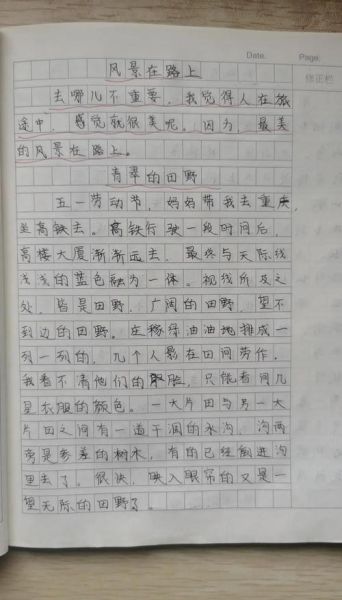 Date.
Page.
修正栏
风景在路上
去哪儿不重要，我觉得人在旅
途中，感觉就很美呢。因为，最美
的风景在路上。
青翠的田野
五一劳动节，妈妈带我去重庆，
坐高铁去。高铁行驶一段时间后，
高楼大厦渐渐远去，最终与天际线
浅浅的蓝色融为一体。视线所及之
处，皆是田野，广阔的田野，望不
到边的田野。庄稼绿油油地排成一
列一列的，几个人影在田间劳作，
我看不清他们的脸，只能看间几
星衣服的颜色。一大片田与另一大
片田之间有一道干涸的水沟，沟两
旁是参差的树木，有的已经倒进沟
里去了。很快，映入眼帘的又是一
望无际的田野了。